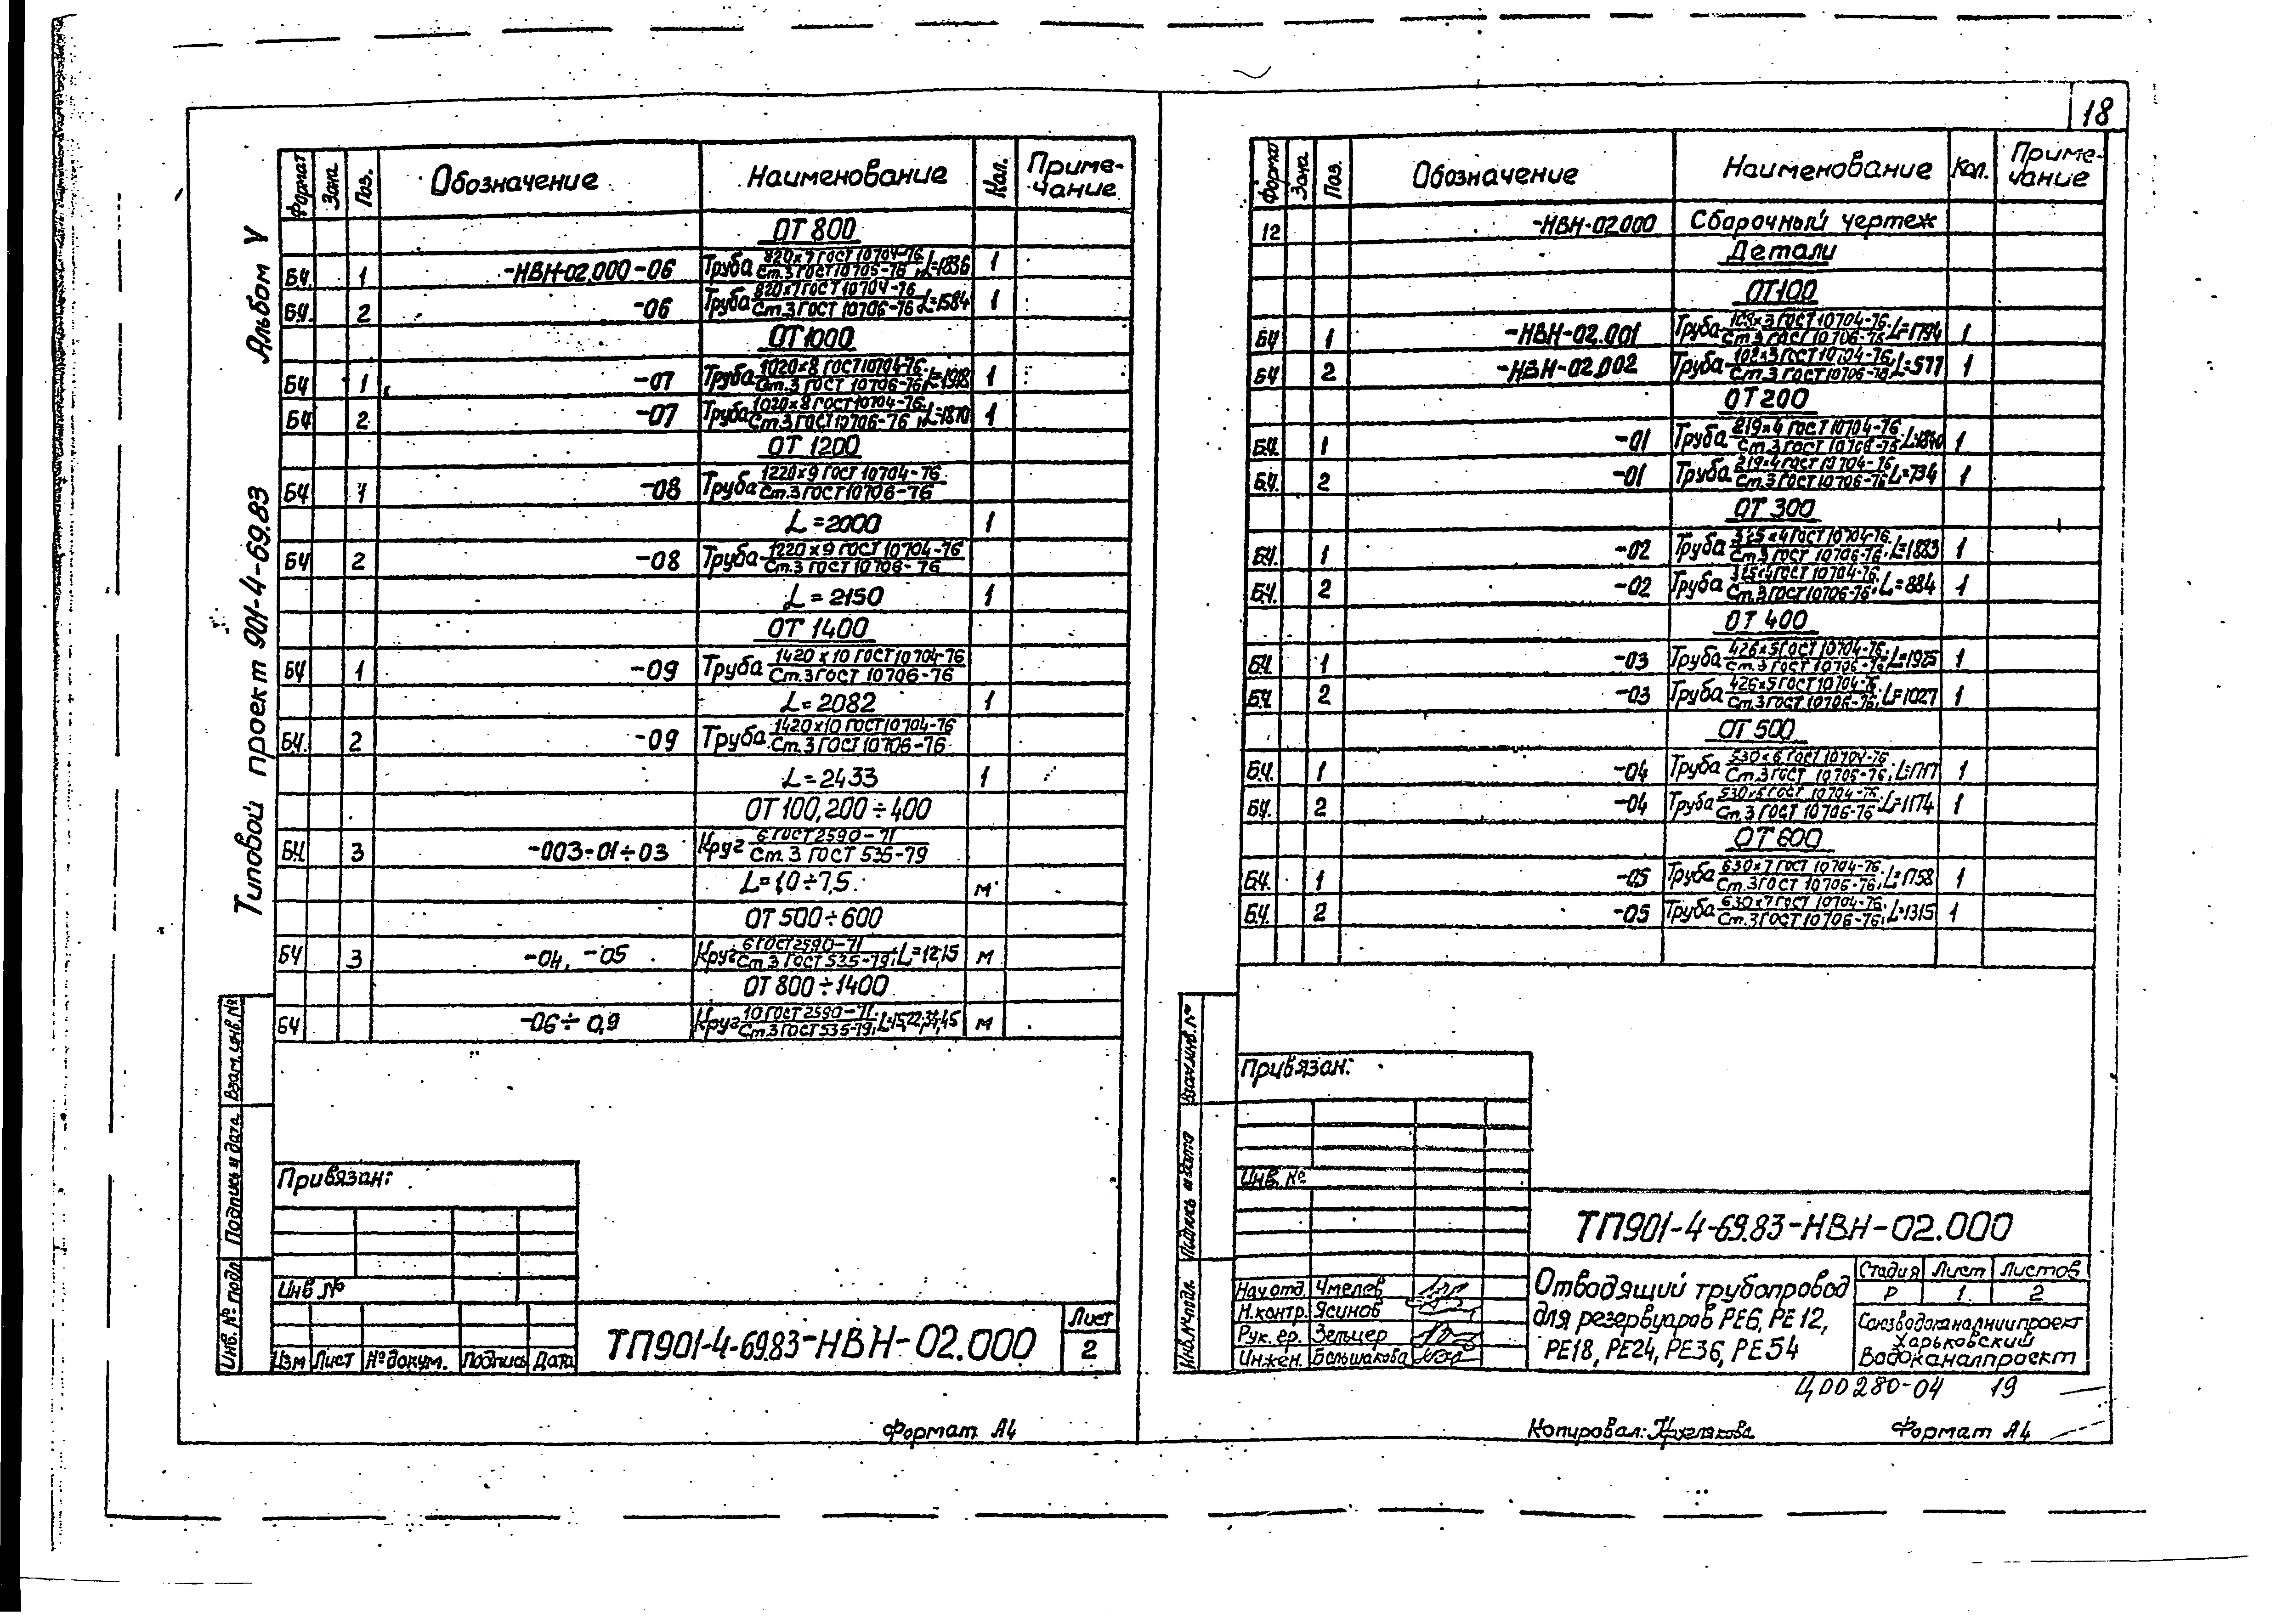 18
Альбом V
Типовой проект 901-4-69.83
Формат Зона Поз. Обозначение Наименование Кол. Приме-чание
ОТ 800
БЧ. 1 -НВН-02.000-06 Труба 820×7 ГОСТ 10704-76 / Ст.3 ГОСТ 10706-76, L=1836 1
БЧ. 2 -06 Труба 820×7 ГОСТ 10704-76 / Ст.3 ГОСТ 10706-76 L=1584 1
ОТ 1000
БЧ 1 -07 Труба 1020×8 ГОСТ 10704-76 / Ст.3 ГОСТ 10706-76, L=1918 1
БЧ 2 -07 Труба 1020×8 ГОСТ 10704-76 / Ст.3 ГОСТ 10706-76, L=1870 1
ОТ 1200
БЧ 1 -08 Труба 1220×9 ГОСТ 10704-76 / Ст.3 ГОСТ 10706-76
L=2000 1
БЧ 2 -08 Труба 1220×9 ГОСТ 10704-76 / Ст.3 ГОСТ 10706-76
L=2150 1
ОТ 1400
БЧ 1 -09 Труба 1420×10 ГОСТ 10704-76 / Ст.3 ГОСТ 10706-76
L=2082 1
БЧ. 2 -09 Труба 1420×10 ГОСТ 10704-76 / Ст.3 ГОСТ 10706-76
L=2433 1
ОТ 100,200÷400
БЧ 3 -003-01÷03 Круг 6 ГОСТ 2590-71 / Ст.3 ГОСТ 535-79
L=1,0÷7,5. м
ОТ 500÷600
БЧ 3 -04, -05 Круг 6 ГОСТ 2590-71 / Ст.3 ГОСТ 535-79, L=12;15 м
ОТ 800÷1400
БЧ -06÷0,9 Круг 10 ГОСТ 2590-71 / Ст.3 ГОСТ 535-79, м
Привязан:
Инв №
Изм Лист № докум. Подпись Дата
ТП901-4-69.83-НВН-02.000
Лист
2
Инв. № подл. Подпись и дата Взам. инв. №
Формат А4
Формат Зона Поз. Обозначение Наименование Кол. Приме-чание
12 -НВН-02.000 Сборочный чертеж
Детали
ОТ 100
БЧ 1 -НВН-02.001 Труба ГОСТ 10704-76 / Ст.3 ГОСТ 10706-76 L=1794 1
БЧ 2 -НВН-02.002 Труба ГОСТ 10704-76 / Ст.3 ГОСТ 10706-76 L=577 1
ОТ 200
БЧ. 1 -01 Труба 219×4 ГОСТ 10704-76 / Ст.3 ГОСТ 10706-76 L=1840 1
БЧ. 2 -01 Труба 219×4 ГОСТ 10704-76 / Ст.3 ГОСТ 10706-76 L=734 1
ОТ 300
БЧ. 1 -02 Труба 325×4 ГОСТ 10704-76 / Ст.3 ГОСТ 10706-76, L=1883 1
БЧ. 2 -02 Труба 325×4 ГОСТ 10704-76 / Ст.3 ГОСТ 10706-76, L=884 1
ОТ 400
БЧ. 1 -03 Труба 426×5 ГОСТ 10704-76 / Ст.3 ГОСТ 10706-76 L=1925 1
БЧ. 2 -03 Труба 426×5 ГОСТ 10704-76 / Ст.3 ГОСТ 10706-76, L=1027 1
ОТ 500
БЧ. 1 -04 Труба 530×6 ГОСТ 10704-76 / Ст.3 ГОСТ 10706-76, L=1717 1
БЧ. 2 -04 Труба 530×6 ГОСТ 10704-76 / Ст.3 ГОСТ 10706-76, L=1174 1
ОТ 600
БЧ. 1 -05 Труба 630×7 ГОСТ 10704-76 / Ст.3 ГОСТ 10706-76, L=1758 1
БЧ. 2 -05 Труба 630×7 ГОСТ 10704-76 / Ст.3 ГОСТ 10706-76, L=1315 1
Привязан:
Инв. №
Инв. № подл. Подпись и дата Взам. инв. №
ТП901-4-69.83-НВН-02.000
Нач.отд. Чмелев
Н.контр. Ясинов
Рук. гр. Зельцер
Инжен. Большакова
Отводящий трубопровод
для резервуаров РЕ6, РЕ12,
РЕ18, РЕ24, РЕ36, РЕ54
Стадия Лист Листов
Р 1 2
Союзводоканалниипроект
Харьковский
Водоканалпроект
Ц00280-04 19
Копировал: Круглякова Формат А4